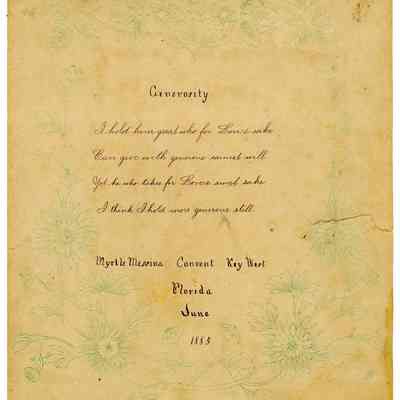 Generosity
I hold him great who for Love's sake
Can give with generous earnest will
Yet he who takes for Love's sweet sake
I think I hold more generous still.
Myrtle Messina Convent Key West
Florida
June
1885